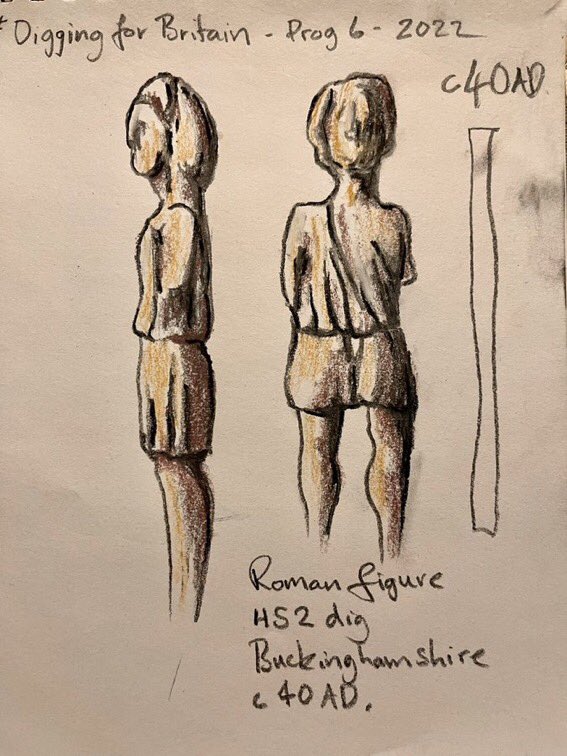 * Digging for Britain - Prog 6 - 2022
c40AD
Roman figure
HS2 dig
Buckinghamshire
c 40 AD.